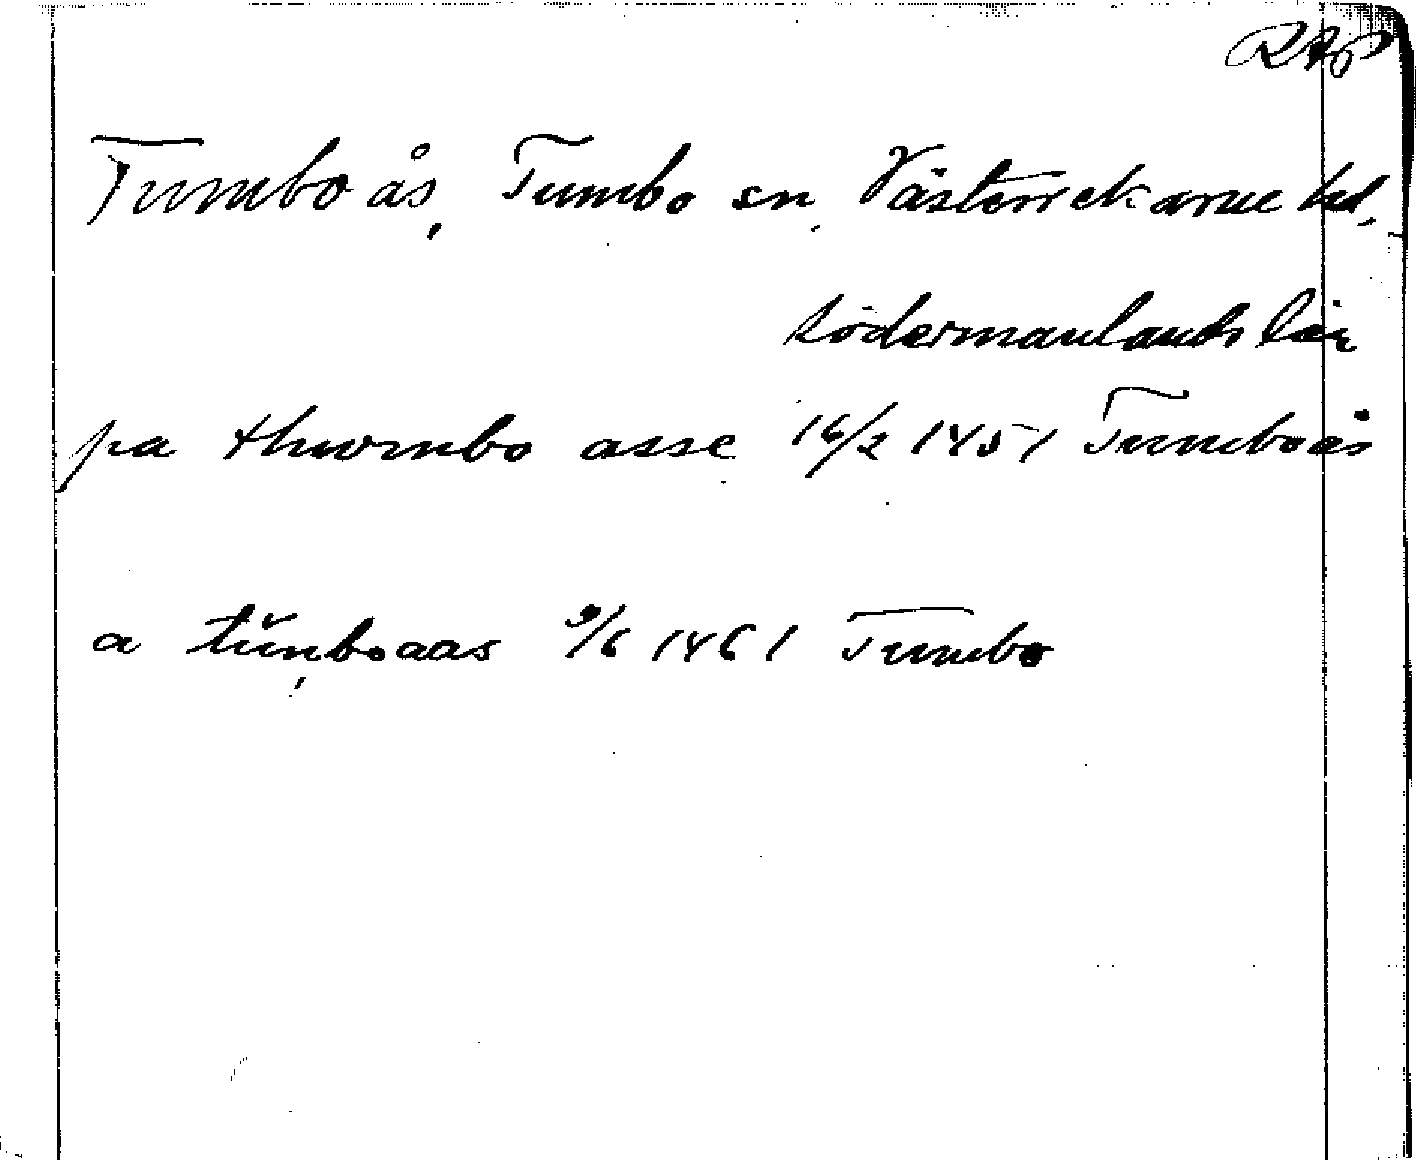 RAp
Tumbo ås, Tumbo sn, Västerrekarne hd,
Södermanlands län
pa thwmbo asse 16/2 1451 Tumboås
a tŭṇboaas 9/6 1461 Tumbo